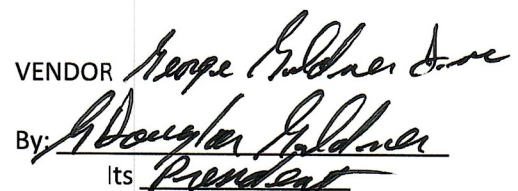 VENDOR George Guldner Inc
By: G Douglas Guldner
Its President